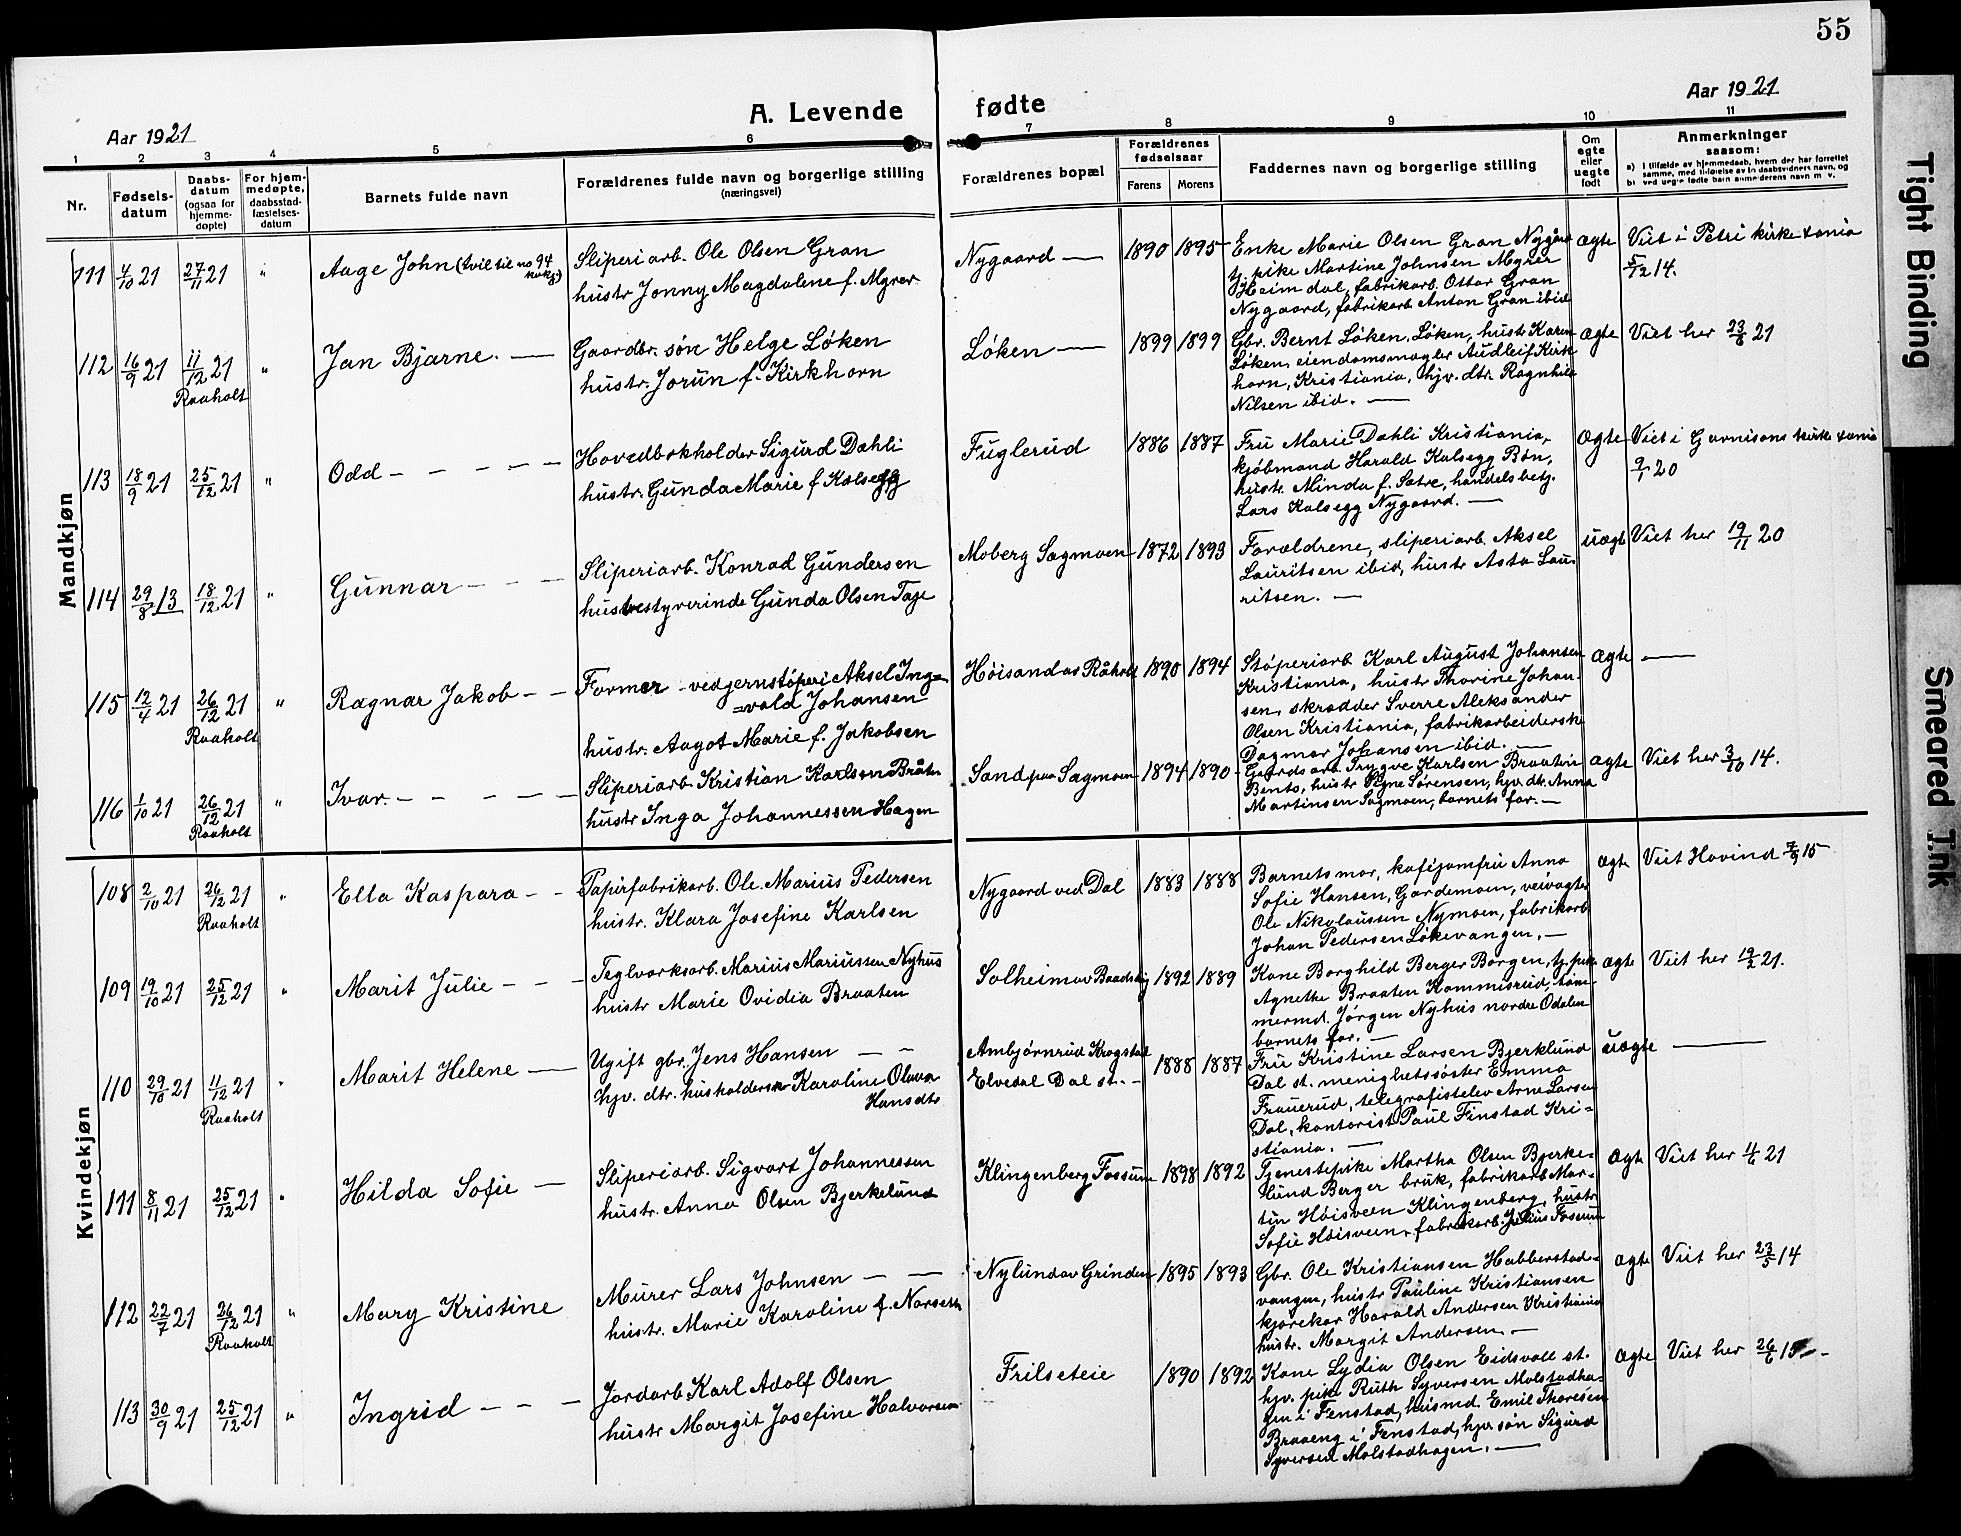 55
A. Levende fødte
Aar 1921
Aar 1921
1 2 3 4 5 6 7 8 9 10 11
Nr.
Fødsels-
datum
Daabs-
datum
(ogsaa for
hjemme-
døpte)
For hjem-
medøpte,
daabsstad-
fæstelses-
datum
Barnets fulde navn
Forældrenes fulde navn og borgerlige stilling
(næringsvei)
Forældrenes bopæl
Forældrenes
fødselsaar
Farens Morens
Faddernes navn og borgerlige stilling
Om
egte
eller
uegte
født
Anmerkninger
saasom:
a) i tilfælde av hjemmedaab, hvem der har forrettet
samme, med tilføielse av to daabsvidners navn, og
b) ved uegte fødte barn anmelderens navn m. v.
Mandkjøn
111 4/10 21 27/11 21 " Aage John (tvil til no 94
Sliperiarb. Ole Olsen Gran
hustr Jonny Magdalene f. Myrer
Nygaard — 1890 1895
Enke Marie Olsen Gran Nygård
tj. pike Martine Johnsen Myrer
Heimdal, fabrikarb. Ottar Gran
Nygaard, fabrikarb Anton Gran ibid
ægte
Viet i Petri kirke xania
5/12 14.
112 16/9 21 11/12 21 " Jan Bjarne. —
Raaholt
Gaardbr. søn Helge Løken
hustr. Jorun f. Kirkhorn
Løken — 1899 1899
Gbr. Bernt Løken, Løken, hustr Karen
Løken, eiendomsmægler Audleif Kirk
horn, Kristiania, hjv. dtr. Ragnhild
Nilsen ibid. —
ægte
Viet her 23/6 21
113 18/9 21 25/12 21 " Odd - - - - -
Hovedbokholder Sigurd Dahli
hustr. Gunda Marie f Kalsegg
Fuglerud 1886 1887
Fru Marie Dahli Kristiania,
kjøbmand Harald Kalsegg Bøn,
hustr. Minda f. Sætre, handelsbetj.
Lars Kalsegg Nygaard. —
ægte
Viet i Garnisons kirke xania
9/1 20
114 29/8 13 18/12 21 " Gunnar - - -
Sliperiarb. Konrad Gundersen
husbestyrerinde Gunda Olsen Tage
Moberg Sagmoen 1872 1893
Forældrene, sliperiarb. Aksel
Lauritsen ibid, hustr Asta Lau-
ritsen. —
uægte
Viet her 19/11 20
115 12/4 21 26/12 21 " Ragnar Jakob - -
Raaholt
Former - ved jernstøperi Aksel Ing-
=vald Johansen
hustr. Aagot Marie f. Jakobsen
Høisand as Råholt 1890 1894
Støperiarb Karl August Johansen
Kristiania, hustr Thorine Johan
sen, skrædder Sverre Aleksander
Olsen Kristiania, fabrikarbeiderske
Dagmar Johansen ibid. —
ægte —
116 1/10 21 26/12 21 " Ivar. - - - - -
Raaholt
Sliperiarb. Kristian Karlsen Bråten
hustr Inga Johannessen Hagen
Sand paa Sagmoen 1894 1890
Gaardsarb. Trygve Karlsen Braaten
Bents, hustr Signe Sørensen, hjv. dtr. Anna
Martinsen Sagmoen, barnets far. —
ægte
Viet her 3/10 14.
Kvindekjøn
108 2/10 21 26/12 21 " Ella Kaspara - -
Raaholt
Papirfabrikarb. Ole Marius Pedersen
hustr. Klara Josefine Karlsen
Nygaard ved Dal 1883 1888
Barnets mor, kaféjomfru Anna
Sofie Hansen, Gardemoen, veivogter
Ole Nikolaussen Nymoen, fabrikarb
Johan Pedersen Løkevangen. —
ægte
Viet Hovind 7/9 15
109 19/10 21 25/12 21 " Marit Julie - - -
Teglverksarb. Marius Mariussen Nyhus
hustr Marie Ovidia Braaten
Solheim av Baadstig 1892 1889
Kone Borghild Berger Borgen, tj. pike
Agnethe Braaten Kommisrud, tøm-
mermd. Jørgen Nyhus nordre Odalen
barnets far. —
ægte
Viet her 19/2 21.
110 29/10 21 11/12 21 " Marit Helene —
Raaholt
Ugift gbr. Jens Hansen — —
hjv. dtr. husholderske Karoline Olava
Hansdtr
Ambjørnrud Krogstad
Elvedal Dal st. - 1888 1887
Fru Kristine Larsen Bjerklund
Dal st. menighetssøster Emma
Frauerud, telegrafistelev Arne Larsen
Dal, kontorist Paul Finstad Kri-
stiania. —
uægte —
111 8/11 21 25/12 21 " Hilda Sofie —
Sliperiarb. Sigvart Johannessen
hustr. Anna Olsen Bjerkelund
Klingenberg Fossum 1898 1892
Tjenestepike Martha Olsen Bjerke-
lund Berger bruk, fabrikarb Mar-
tin Høisveen Klingenberg, hustr
Sofie Høisveen, fabrikarb. Julius Fossum
ægte
Viet her 4/6 21
112 22/7 21 26/12 21 " Mary Kristine
Raaholt
Murer Lars Johnsen — —
hustr. Marie Karoline f. Norseth
Nylund av Grinden 1895 1893
Gbr. Ole Kristiansen Habberstad-
vangen, hustr Pauline Kristiansen
kjørekar Harald Andersen Kristiania
hustr. Margit Andersen. —
ægte
Viet her 23/5 14
113 30/9 21 25/12 21 " Ingrid - - -
Jordarb Karl Adolf Olsen
hustr Margit Josefine Halvorsen
Frilseteie 1890 1892
Kone Lydia Olsen Eidsvoll st.
hjv. pike Ruth Syversen Molstadha-
gen i Fenstad, husmd. Emil Thoresen
Braaeng i Fenstad, hjv. søn Sigurd
Syversen Molstadhagen. —
ægte
Viet her 26/6 15
Tight Binding
Smeared Ink